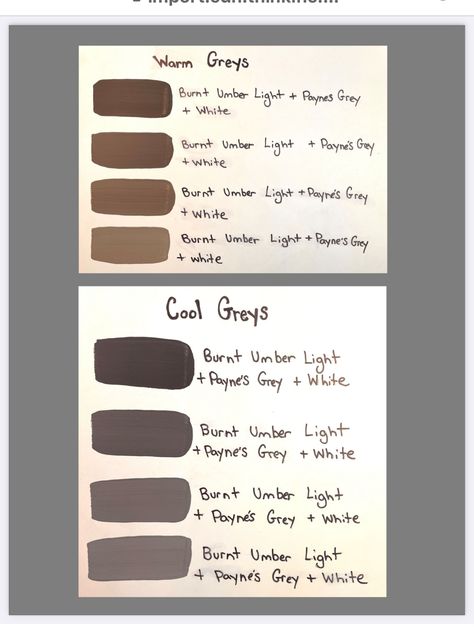 Warm Greys
Burnt Umber Light + Paynes Grey
+ White
Burnt Umber Light + Payne's Grey
+ White
Burnt Umber Light + Payne's Grey
+ White
Burnt Umber Light + Payne's Grey
+ White
Cool Greys
Burnt Umber Light
+ Payne's Grey + White
Burnt Umber Light
+ Payne's Grey + White
Burnt Umber Light
+ Payne's Grey + White
Burnt Umber Light
+ Payne's Grey + White